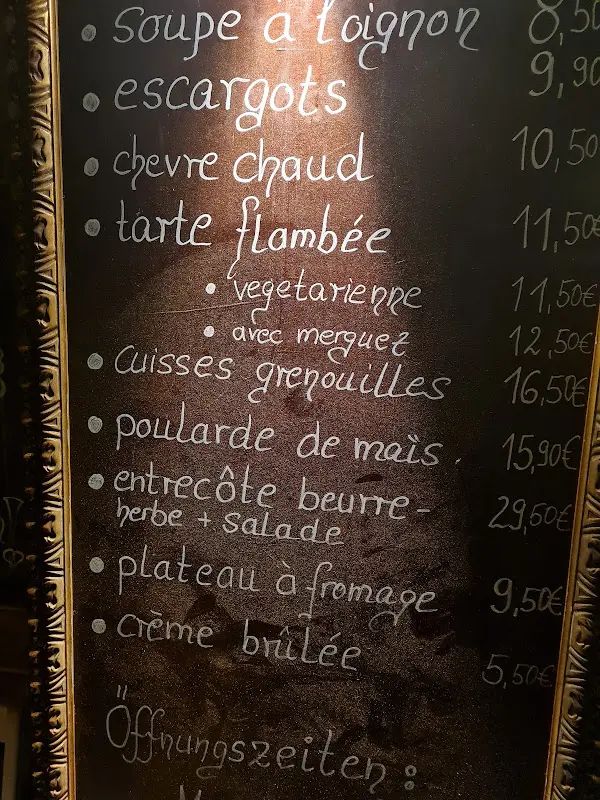 • soupe à l'oignon 8,50
• escargots 9,90
• chevre chaud 10,50
• tarte flambée 11,50€
• vegetarienne 11,50€
• avec merguez 12,50€
• cuisses grenouilles 16,50€
• poularde de maïs. 15,90€
• entrecôte beurre- 29,50€
herbe + salade
• plateau à fromage 9,50€
• crème brûlée 5,50€
Öffnungszeiten: